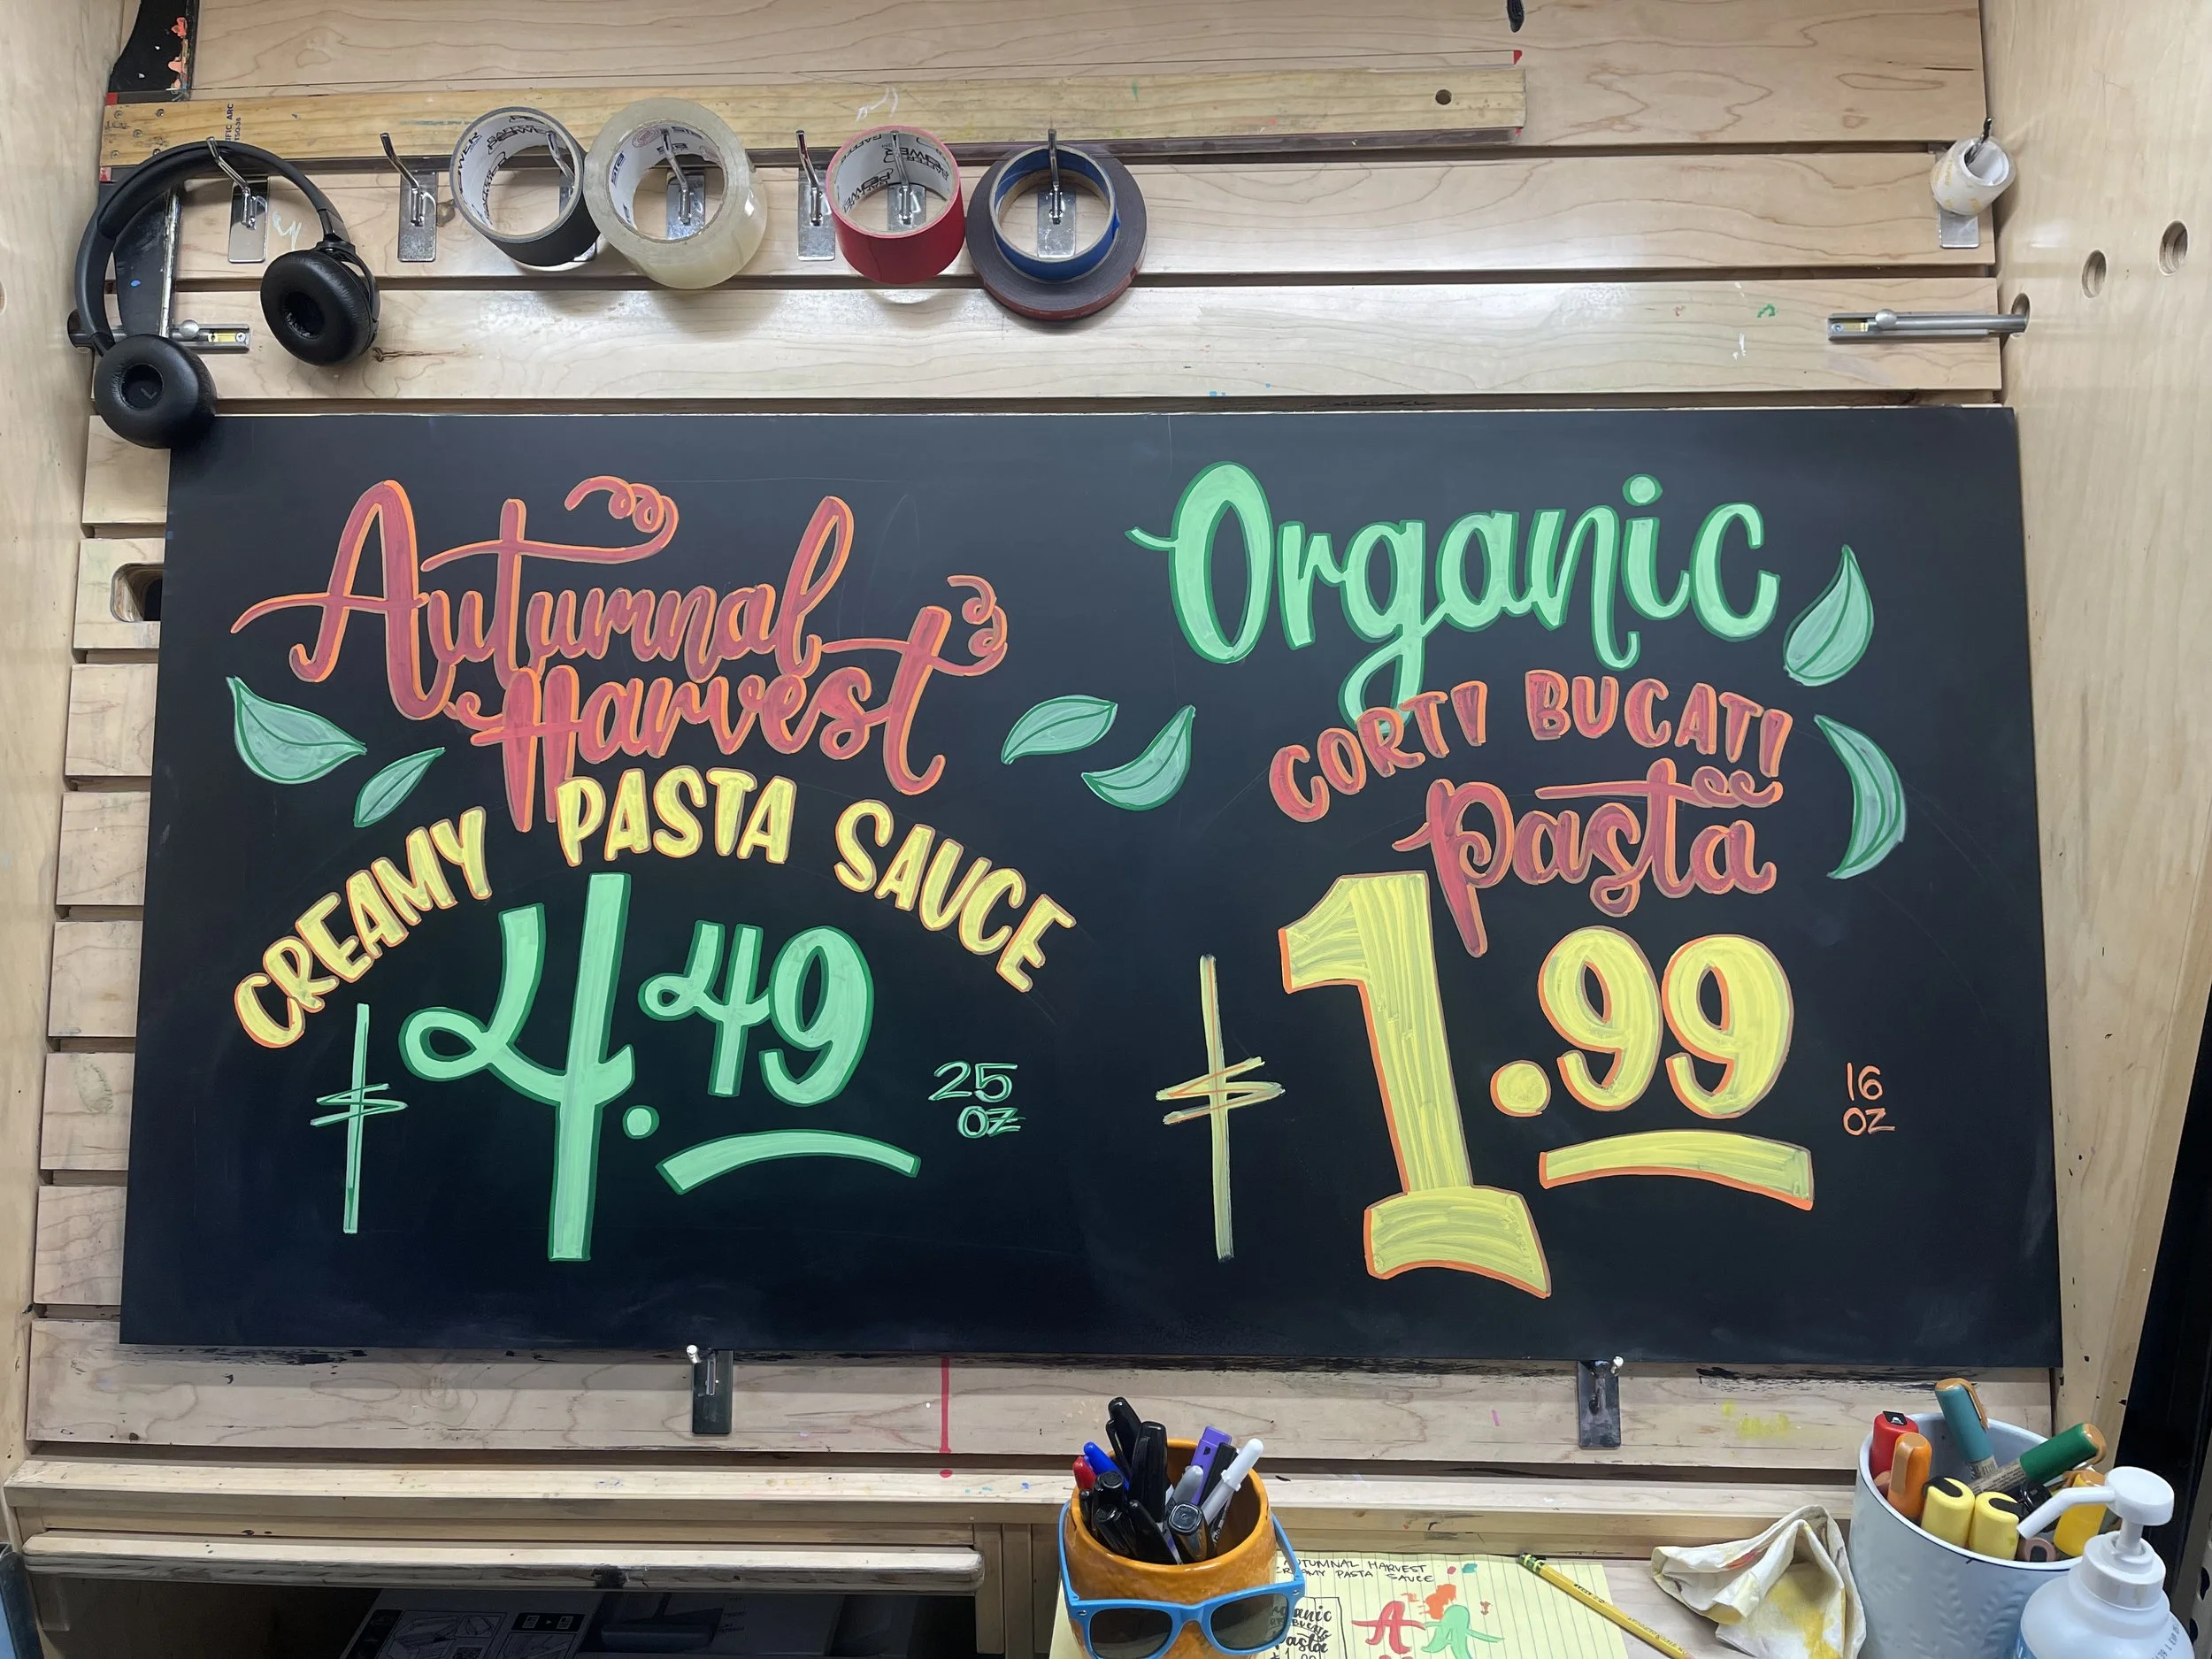 Autumnal
Harvest
CREAMY PASTA SAUCE
$4.49
25
OZ
Organic
CORTI BUCATI
Pasta
$1.99
16
OZ
AUTUMNAL HARVEST
PASTA SAUCE